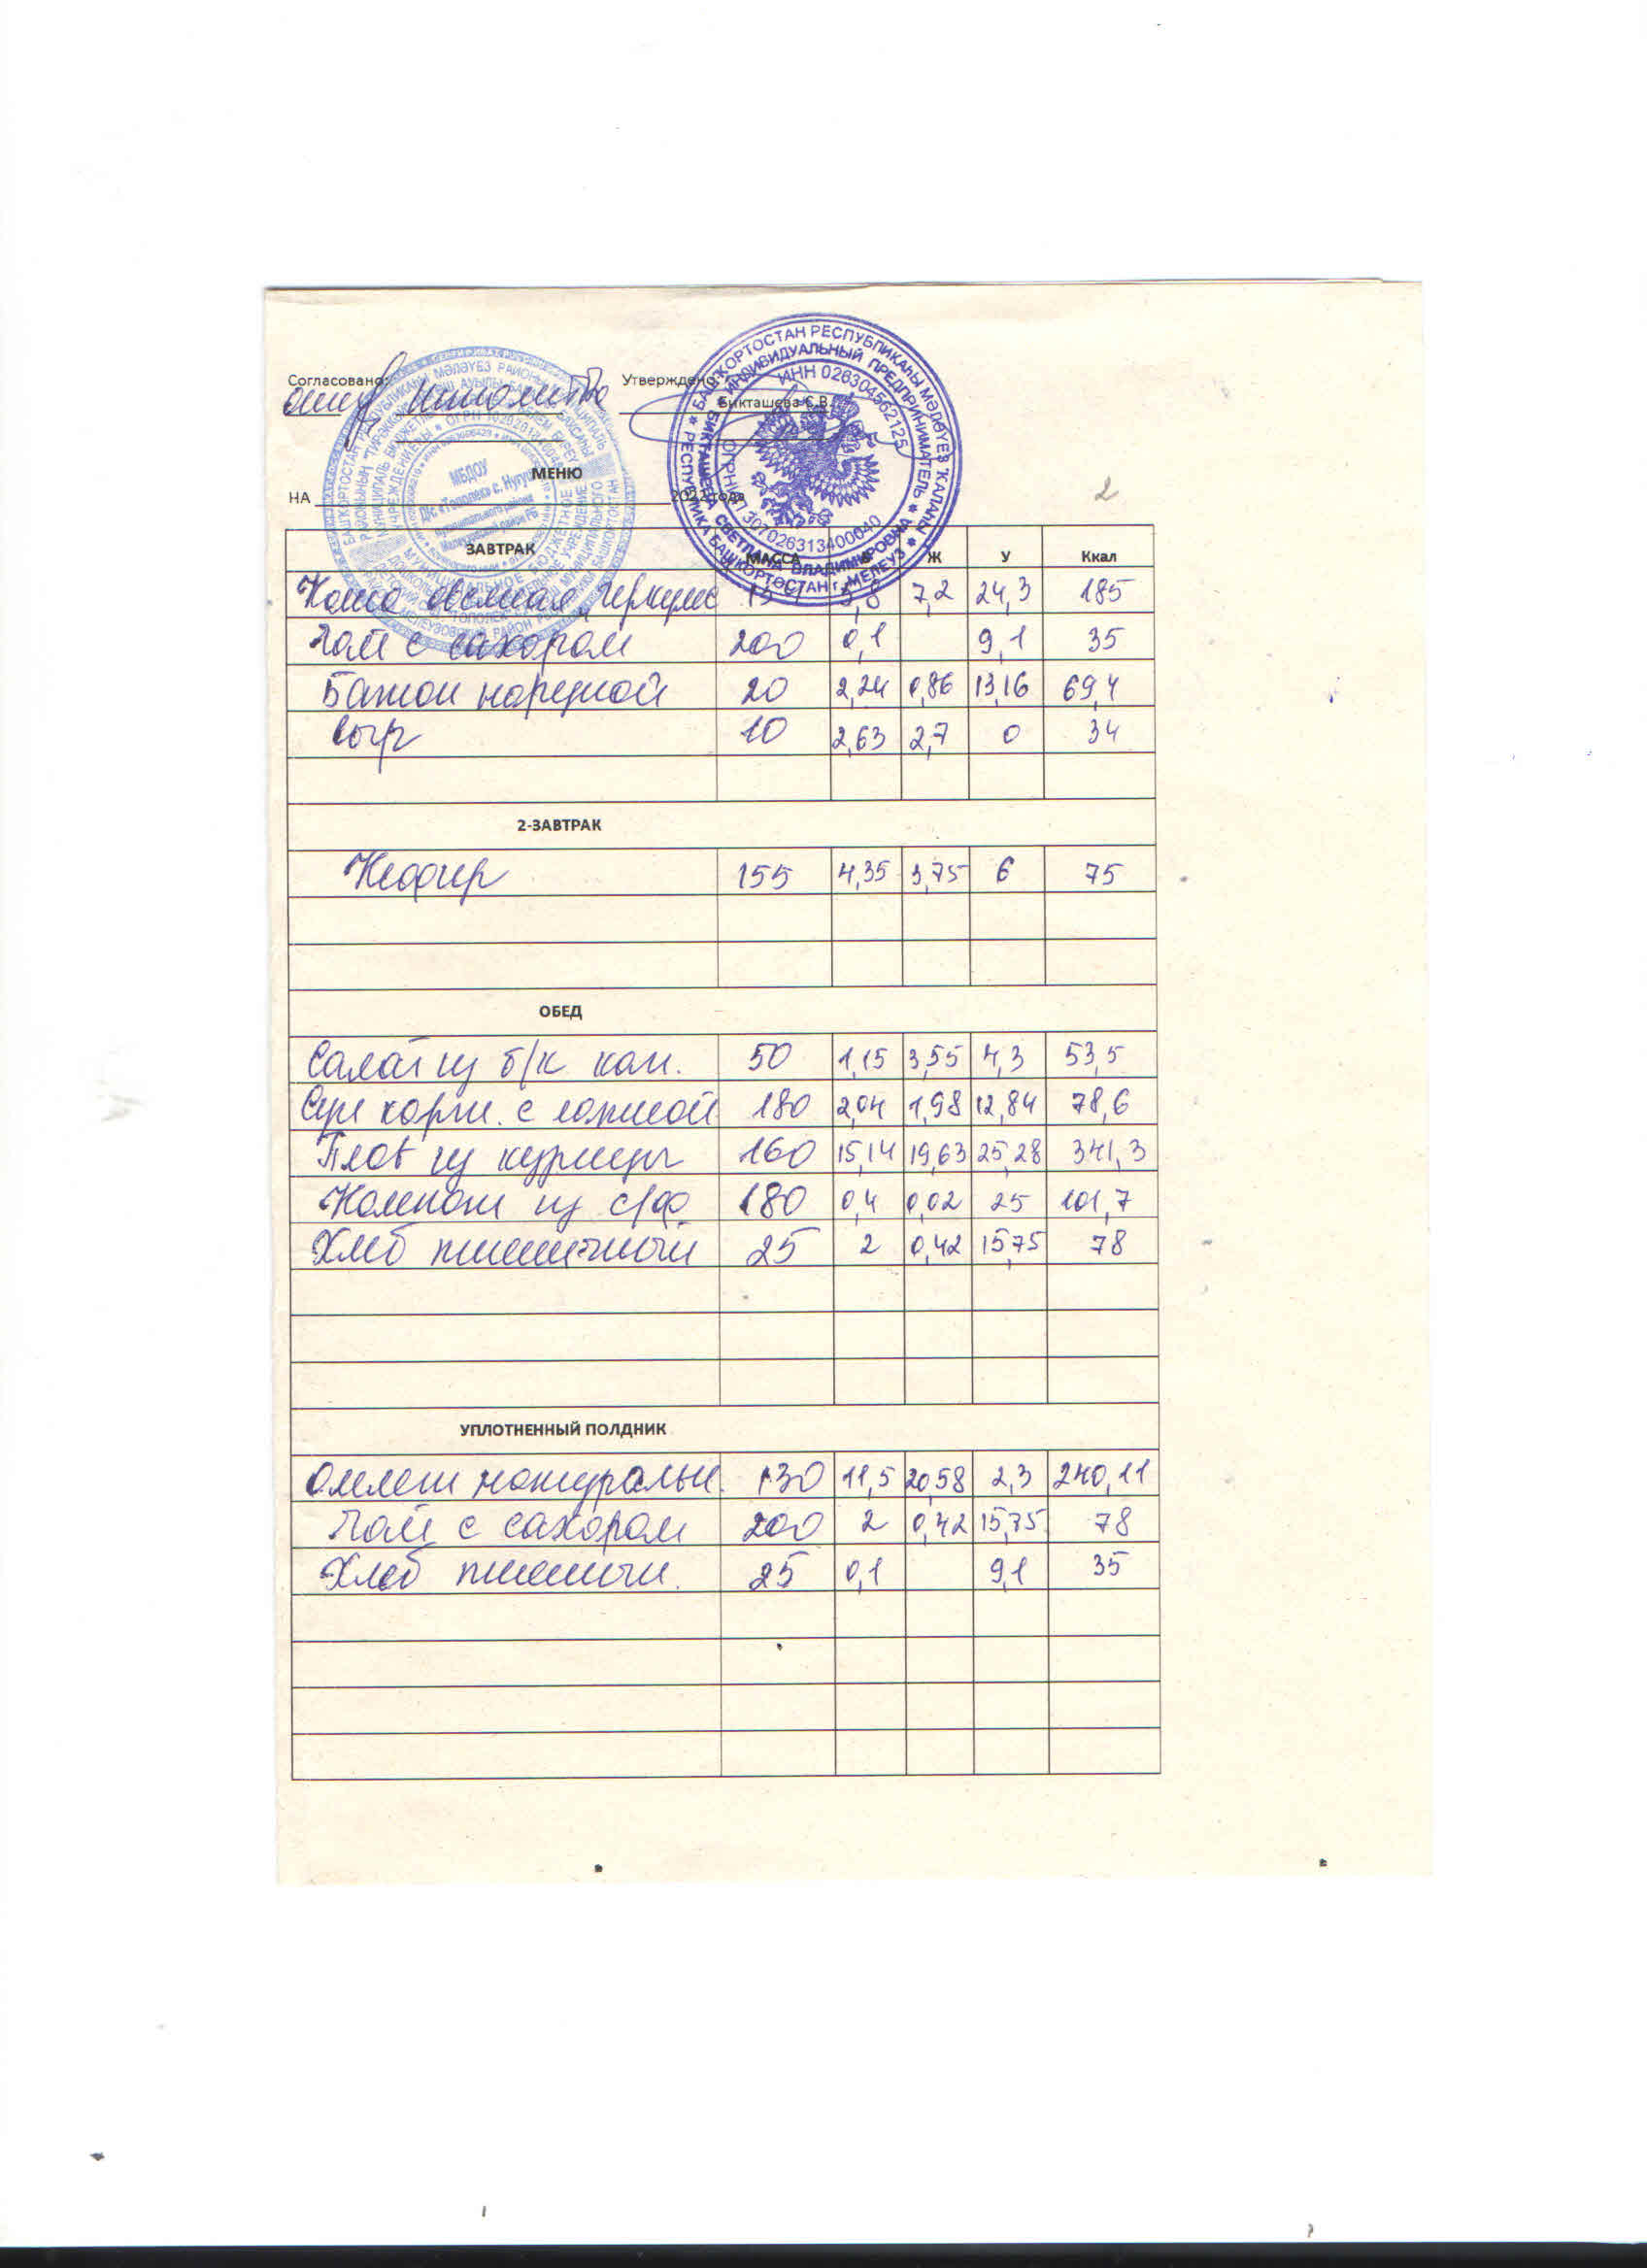 Согласовано:
Утверждено:
Бикташева С.В.
МЕНЮ
НА 2022 года
2
ЗАВТРАК МАССА Ж У Ккал
Каша овсяная "Геркулес 7,2 24,3 185
Чай с сахаром 200 0,1 9,1 35
Батон нарезной 20 2,24 0,86 13,16 69,4
Сыр 10 2,63 2,7 0 34
2-ЗАВТРАК
Кефир 155 4,35 3,75 6 75
ОБЕД
Салат из б/к кап. 50 1,15 3,55 4,3 53,5
Суп карт. с лапшой 180 2,04 1,98 12,84 78,6
Плов из курицы 160 15,14 19,63 25,28 341,3
Компот из с/ф. 180 0,4 0,02 25 101,7
Хлеб пшеничный 25 2 0,42 15,75 78
УПЛОТНЕННЫЙ ПОЛДНИК
Омлет натуральн. 130 11,5 20,58 2,3 240,11
Чай с сахаром 200 2 0,42 15,75 78
Хлеб пшеничн. 25 0,1 9,1 35
БАШҠОРТОСТАН РЕСПУБЛИКАҺЫ МӘЛӘҮЕЗ ҠАЛАҺЫ
РЕСПУБЛИКА БАШКОРТОСТАН г. МЕЛЕУЗ
ИНДИВИДУАЛЬНЫЙ ПРЕДПРИНИМАТЕЛЬ
БИКТАШЕВА СВЕТЛАНА ВЛАДИМИРОВНА
ИНН 026304562125
ОГРНИП 307026313400040
МБДОУ
Д/с «Тополек» с. Нугуш
муниципального района
Мелеузовский район РБ